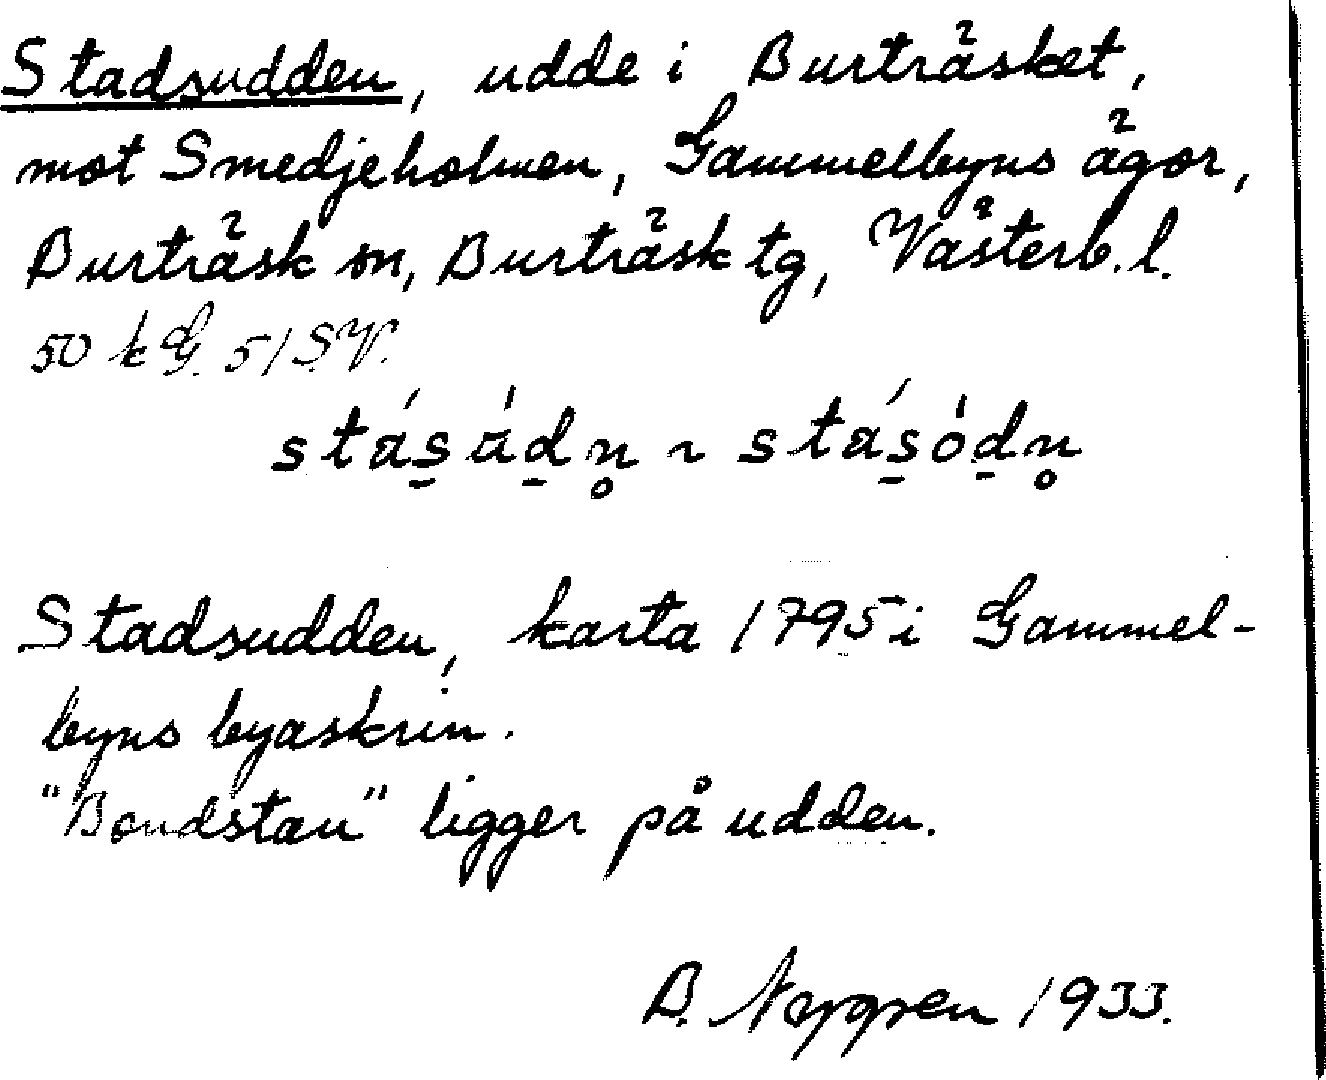 Stadsudden, udde i Burträsket,
mot Smedjeholmen, Gammelbyns ägor,
Burträsk sn, Burträsk tg, Västerb. l.
50 kG. 51 SV.
stá̱sùḏn̥ ~ stá̱sòḏn̥
Stadsudden, karta 1795 i Gammel-
byns byaskrin.
"Bondstan" ligger på udden.
B. Nygren 1933.